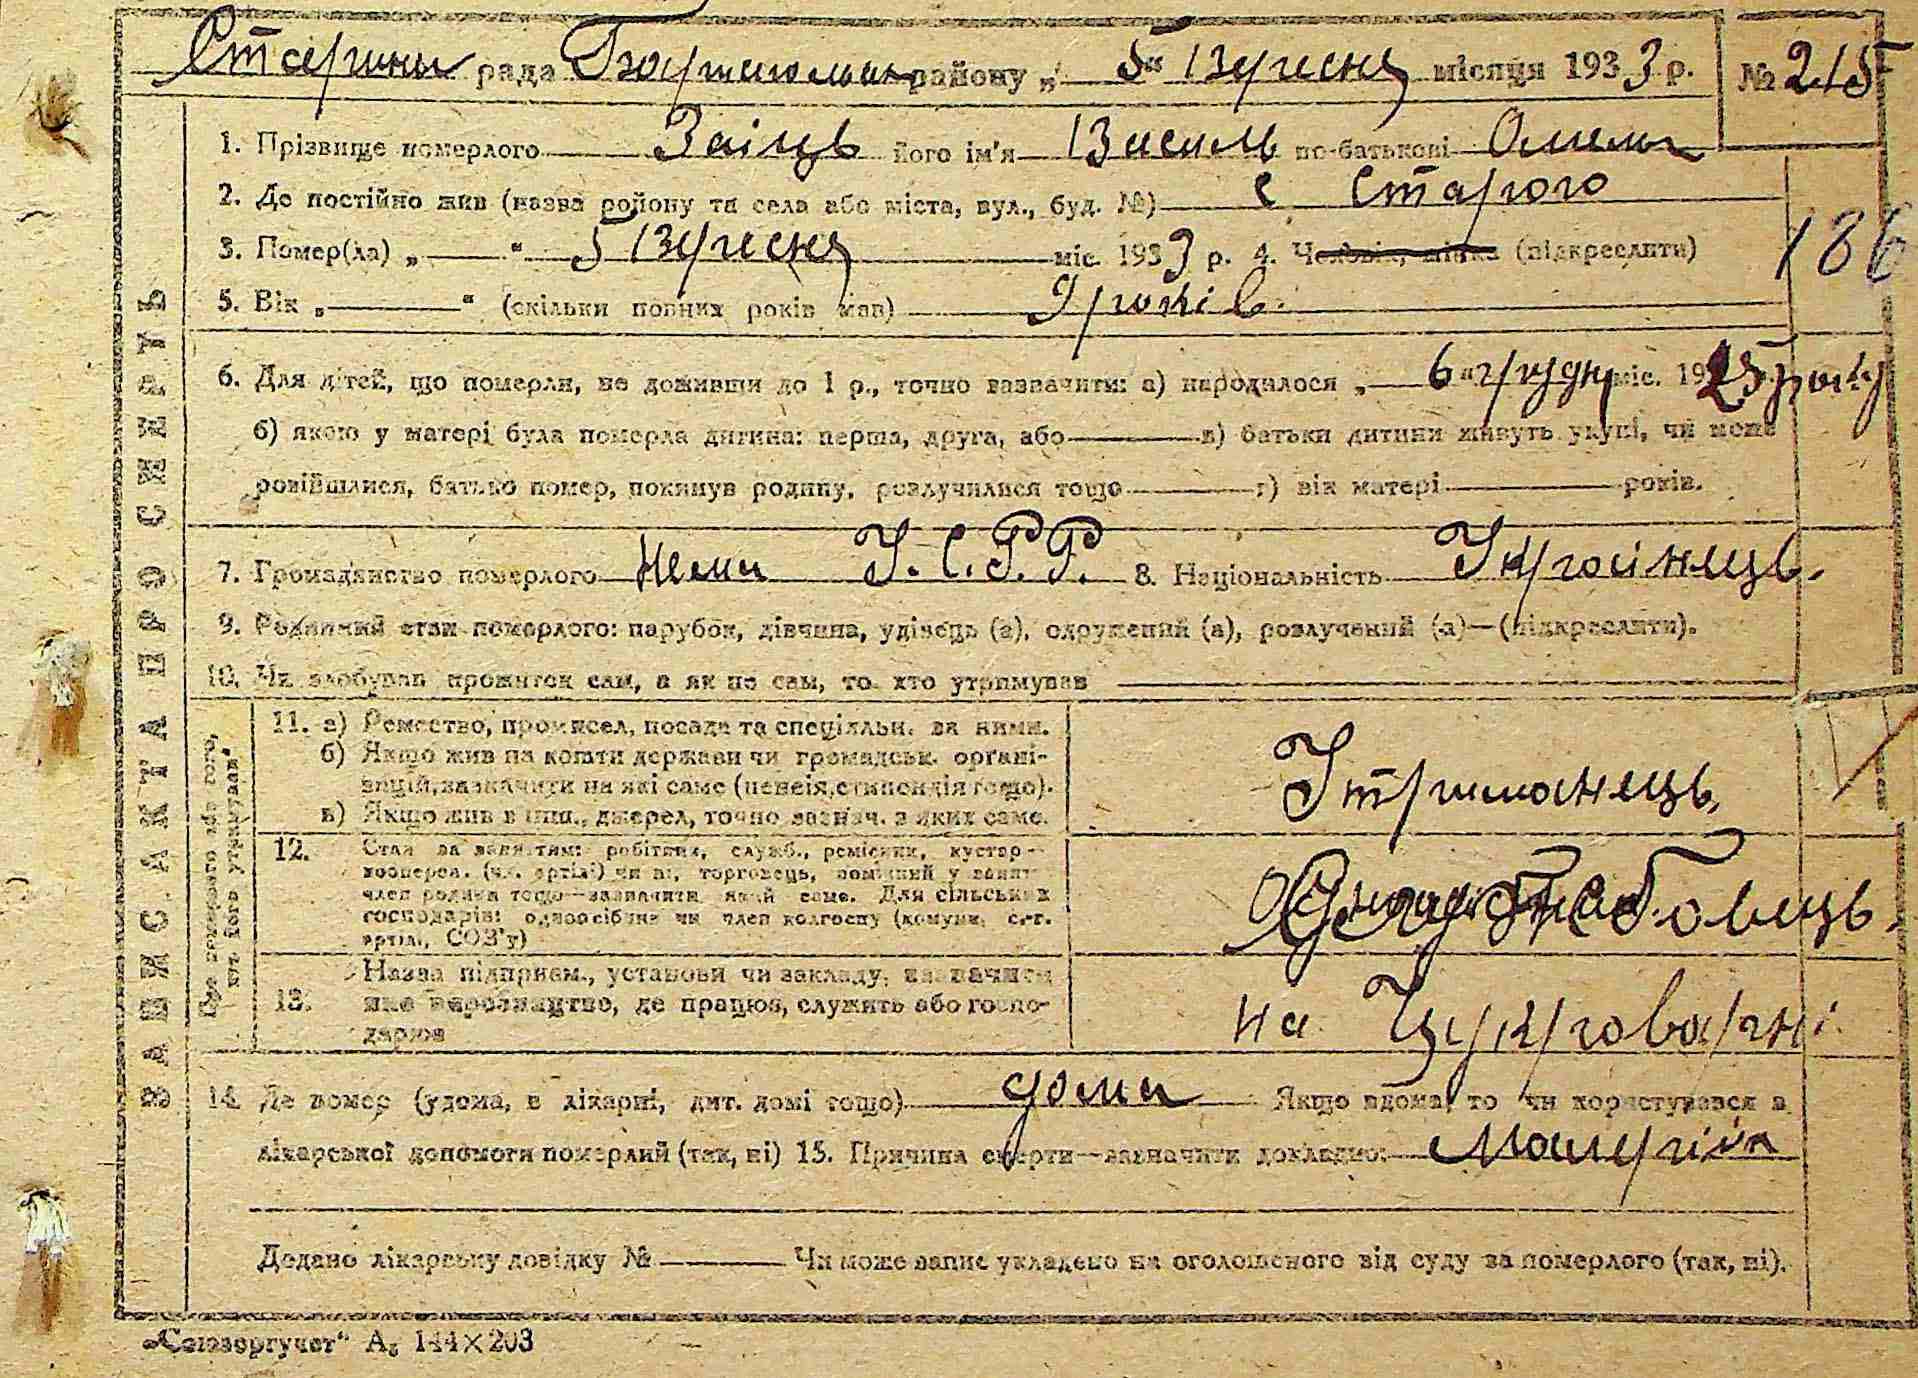 рада району „ 5“ Вересня місяця 1933 р. № 215
1. Прізвище померлого Заіць його ім'я Василь по-батькові
2. Де постійно жив (назва району та села або міста, вул., буд. №) с Старого
3. Помер(ла) „ “ 5 Вересня міс. 1933 р. 4. Чоловік, жінка (підкреслити)
186
5. Вік „ “ (скільки повних років мав) років.
6. Для дітей, що померли, не доживши до 1 р., точно зазначити: а) народилося „ 6 “ грудня міс. 1925 року
б) якою у матері була померла дитина: перша, друга, або в) батьки дитини живуть укупі, чи може
розійшлися, батько помер, покинув родину, розлучилися тощо г) вік матері років.
7. Громадянство померлого У.С.Р.Р. 8. Національність Українець.
9. Родинний стан померлого: парубок, дівчина, удівець (а), одружений (а), розлучений (а)—(підкреслити).
10. Чи здобував прожиток сам, а як не сам, то хто утримував
ЗАПИС АКТА ПРО СМЕРТЬ
Про померлого або того, хто його утримував
11. а) Ремество, промисел, посада та спеціяльн. за ними.
б) Якщо жив на кошти держави чи громадськ. органі-
зацій, зазначити на які саме (пенсія, стипендія тощо).
в) Якщо жив з инш., джерел, точно зазнач. з яких саме.
Утриманець
12. Стан за заняттям: робітник, служб., ремісник, кустар—
кооперов. (чл. артілі) чи ні, торговець, помічний у занят.
член родини тощо—зазначити який саме. Для сільських
господарів: одноосібник чи член колгоспу (комуни, с.-г.
артіл., СОЗ'у)
13. Назва підприєм., установи чи закладу, зазначити
яке виробництво, де працює, служить або госпо-
дарює
на Цукроварні
14. Де помер (удома, в лікарні, дит. домі тощо) дома Якщо вдома, то чи користувався з
лікарської допомоги померлий (так, ні) 15. Причина смерти—зазначити докладно: Малярія
Додано лікарську довідку № Чи може запис укладено на оголошеного від суду за померлого (так, ні).
„Союзоргучет“ А₅ 144×203